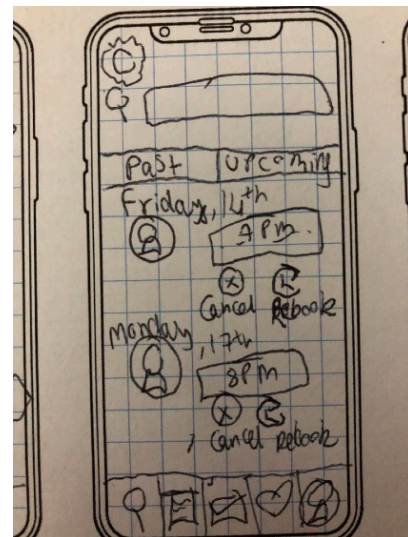 C
Past Upcoming
Friday, 14th
4 PM.
Cancel Rebook
Monday, 17th
8PM
Cancel Rebook